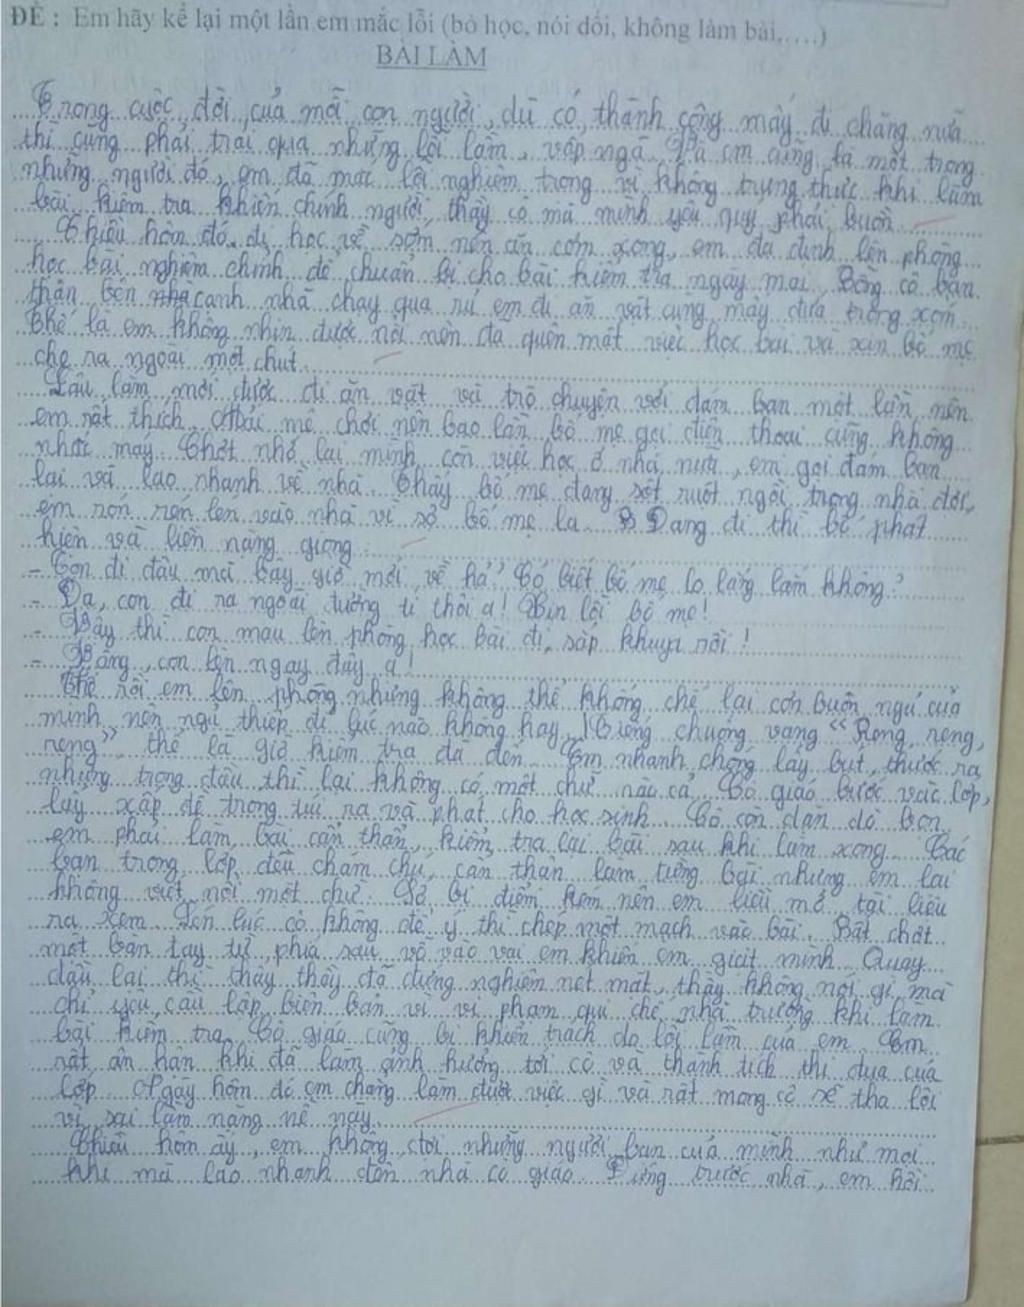 ĐỀ : Em hãy kể lại một lần em mắc lỗi (bỏ học, nói dối, không làm bài,….)
BÀI LÀM
Trong cuộc đời của mỗi con người, dù có thành công mấy đi chăng nữa
thì cũng phải trải qua những lỗi lầm, vấp ngã. Và em cũng là một trong
những người đó, em đã mắc lỗi nghiêm trọng vì không trung thực khi làm
bài kiểm tra khiến chính người thầy cô mà mình yêu quý phải buồn.
Chiều hôm đó, đi học về sớm nên ăn cơm xong, em đã định lên phòng
học bài nghiêm chỉnh để chuẩn bị cho bài kiểm tra ngày mai. Bỗng cô bạn
thân bên cạnh nhà chạy qua rủ em đi ăn vặt cùng mấy đứa trong xóm.
Thế là em không nhịn được nổi nên đã quên mất việc học bài và xin bố mẹ
cho ra ngoài một chút.
Lâu lắm mới được đi ăn vặt và trò chuyện với đám bạn một lần nên
em rất thích. Mải mê chơi nên bao lần bố mẹ gọi điện thoại cũng không
nhấc máy. Chợt nhớ lại mình còn việc học ở nhà nữa, em gọi đám bạn
lại và lao nhanh về nhà. Thấy bố mẹ đang sốt ruột ngồi trong nhà đợi,
em rón rén lẻn vào nhà vì sợ bố mẹ la. Đang đi thì bố phát
hiện và liền nặng giọng:
- Con đi đâu mà bây giờ mới về hả? Có biết bố mẹ lo lắng lắm không?
- Dạ, con đi ra ngoài đường tí thôi ạ! Xin lỗi bố mẹ!
- Vậy thì con mau lên phòng học bài đi, sắp khuya rồi!
- Vâng, con lên ngay đây ạ!
Thế rồi em lên phòng nhưng không thể khống chế lại cơn buồn ngủ của
mình nên ngủ thiếp đi lúc nào không hay. Tiếng chuông vang "Reng, reng,
reng" thế là giờ kiểm tra đã đến. Em nhanh chóng lấy bút, thước ra
nhưng trong đầu thì lại không có một chữ nào cả. Cô giáo bước vào lớp,
lấy xấp đề trong túi ra và phát cho học sinh. Cô còn dặn dò bọn
em phải làm bài cẩn thẩn, kiểm tra lại bài sau khi làm xong. Các
bạn trong lớp đều chăm chú, cẩn thận làm từng bài nhưng em lại
không viết nổi một chữ. Sợ bị điểm kém nên em liều mở tài liệu
ra xem. Lợn lúc cô không để ý thì chép một mạch vào bài. Bất chợt
một bàn tay từ phía sau vỗ vào vai em khiến em giật mình. Quay
đầu lại thì thấy thầy đã đứng nghiêm nét mặt, thầy không nói gì mà
chỉ yêu cầu lập biên bản vì vi phạm qui chế nhà trường khi làm
bài kiểm tra. Cô giáo cũng bị khiển trách do lỗi lầm của em. Em
rất ân hận khi đã làm ảnh hưởng tới cô và thành tích thi đua của
lớp. Ngày hôm đó em chẳng làm được việc gì và rất mong cô sẽ tha lỗi
vì sai lầm nặng nề này.
Chiều hôm ấy, em không đợi những người bạn của mình như mọi
khi mà lao nhanh đến nhà cô giáo. Đứng trước nhà, em hồi